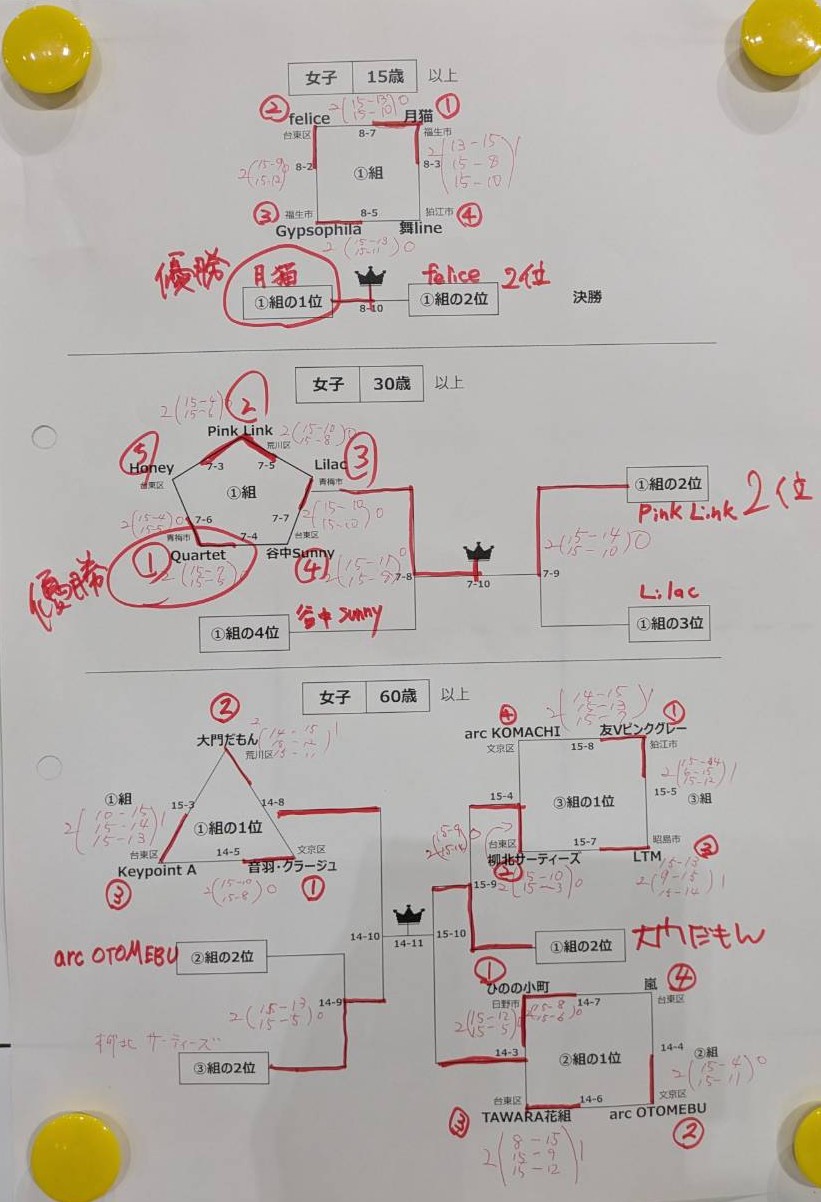 女子 15歳 以上
② felice 2(15-13 15-10)0 月猫 ①
台東区 8-7 福生市
2(15-9 15-12)0 8-2 ①組 8-3 2(13-15 15-8 15-10)1
③ 福生市 8-5 狛江市 ④
Gypsophila 舞line
2(15-13 15-11)0
優勝 月猫 felice 2位
①組の1位 8-10 ①組の2位 決勝
女子 30歳 以上
2(15-4 15-6)0 ②
Pink Link 2(15-10 15-8)0
荒川区
⑤ Honey 7-3 7-5 Lilac ③
台東区 ①組 青梅市
①組の2位
Pink Link 2位
2(15-4 15-5)0 7-6 7-7 2(15-10 15-10)0
青梅市 7-4 台東区
優勝 ① Quartet 谷中Sunny
④ 7-8 7-10 7-9 2(15-14 15-10)0
谷中sunny Lilac
①組の4位 ①組の3位
女子 60歳 以上
②
大門だもん 2(14-15 15-12 15-11)1
荒川区
①組 15-3 14-8
2(10-15 15-14 15-13)1 ①組の1位
台東区 14-5 文京区
Keypoint A 音羽・クラージュ
③ 2(15-10 15-8)0 ①
④ 2(14-15 15-13 15-7)1 ①
arc KOMACHI 友Vピンクグレー
文京区 15-8 狛江市
15-4 ③組の1位 15-5 ③組
台東区 15-7 昭島市
柳北サーティーズ LTM ③
② 2(15-10 15-3)0 2(15-13 9-15 15-14)1
15-9
arc OTOMEBU ②組の2位 14-10 14-11 15-10 ①組の2位 大門だもん
2(15-13 15-5)0 14-9
柳北サーティーズ
③組の2位
① ひのの小町 嵐 ④
日野市 14-7 台東区
2(15-12 15-5)0 2(15-8 15-6)0
14-3 ②組の1位 14-4 ②組
2(15-4 15-11)0
台東区 14-6 文京区
③ TAWARA花組 arc OTOMEBU
2(8-15 15-9 15-12)1 ②